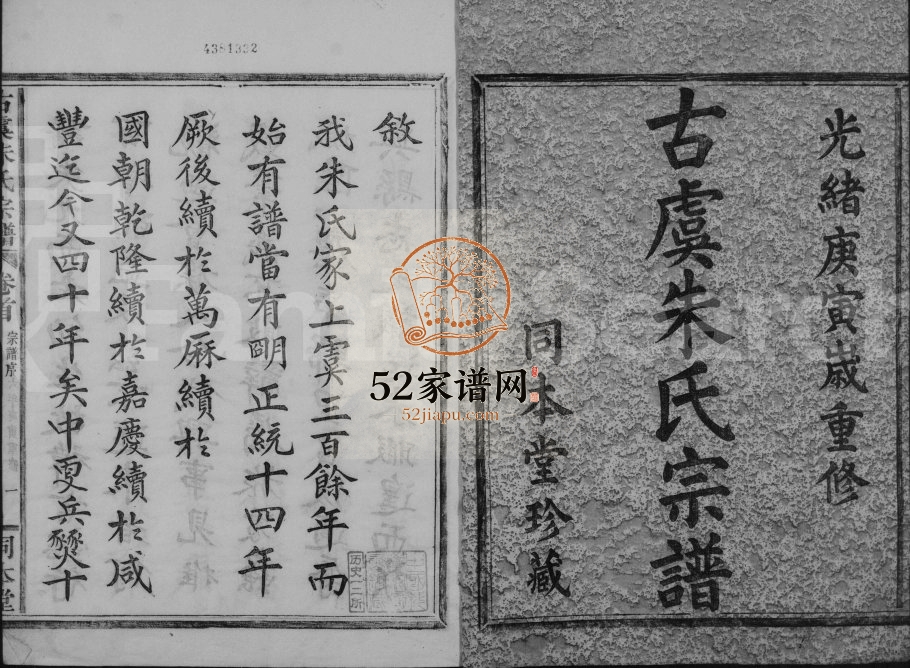 光緒庚寅歲重修
古虞朱氏宗譜
同本堂珍藏
4381332
敘
我朱氏家上虞三百餘年而
始有譜當有明正統十四年
厥後續於萬厤續於
國朝乾隆續於嘉慶續於咸
豐迄今又四十年矣中更兵燹十
古虞朱氏宗譜 卷首 宗譜序 一 同本堂
历史二所
52家谱网
52jiapu.com